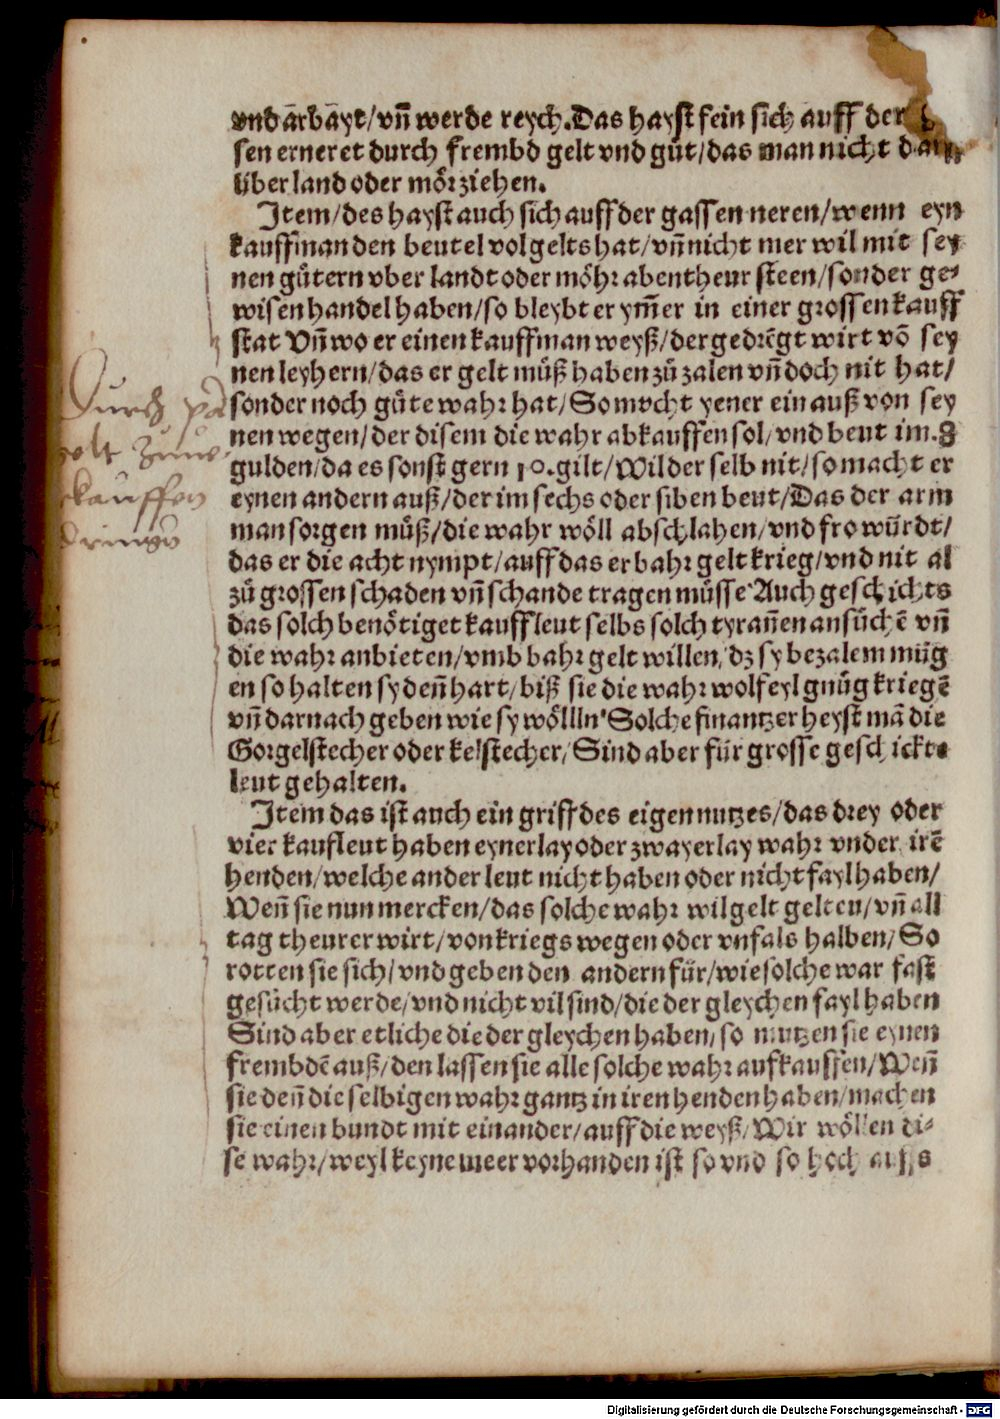 vnd ārbāyt/vñ werde reych.Das hayſt fein ſich auff der
ſen erneret durch frembd gelt vnd gůt/das man nicht
über land oder mörziehen.
Item/des hayſt auch ſich auff der gaſſen neren/wenn eyn
kauffman den beutel vol gelts hat/vñ nicht mer wil mit ſey
nen gütern vber landt oder möhr abentheur ſteen/ſonder ge⸗
wiſen handel haben/ſo bleybt er ym̄er in einer groſſen kauff
ſtat Vñ wo er einen kauffman weyß/der gedrēgt wirt vō ſey
nen leyhern/das er gelt müß haben zů zalen vñ doch nit hat/
ſonder noch gůte wahr hat/So mycht yener ein auß von ſey
nen wegen/der diſem die wahr abkauffen ſol/vnd beut im.8
gulden/da es ſonſt gern 10.gilt/Wil der ſelb nit/ſo macht er
eynen andern auß/der im ſechs oder ſiben beut/Das der arm
man ſorgen müß/die wahr wöll abſchlahen/vnd fro würdt/
das er die acht nympt/auff das er bahr gelt krieg/vnd nit al
zů groſſen ſchaden vñ ſchande tragen müſſe Auch geſchichts
das ſolch benötiget kauffleut ſelbs ſolch tyrañen anſůchē vñ
die wahr anbieten/vmb bahr gelt willen/dz ſy bezalem müg
en ſo halten ſy deñ hart/biß ſie die wahr wolfeyl gnůg kriegē
vñ darnach geben wie ſy wöllln Solche finantzer heyſt mā die
Gorgelſtecher oder kelſtecher/Sind aber für groſſe geſchickte
leut gehalten.
Item das iſt auch ein griff des eigen nutzes/das drey oder
vier kaufleut haben eynerlay oder zwayerlay wahr vnder irē
henden/welche ander leut nicht haben oder nicht fayl haben/
Weñ ſie nun mercken/das ſolche wahr wil gelt gelten/vñ all
tag theurer wirt/von kriegs wegen oder vnfals halben/So
rotten ſie ſich/vnd geben den andern für/wie ſolche war faſt
geſůcht werde/vnd nicht vil ſind/die der gleychen fayl haben
Sind aber etliche die der gleychen haben/ſo mutzen ſie eynen
frembdē auß/den laſſen ſie alle ſolche wahr aufkauffen/Weñ
ſie deñ die ſelbigen wahr gantz in iren henden haben/machen
ſie einen bundt mit einander/auff die weyß/Wir wöllen di⸗
ſe wahr/weyl keyne meer vorhanden iſt ſo vnd ſo hoch auffs
Durch
gelt
kauffen
Digitalisierung gefördert durch die Deutsche Forschungsgemeinschaft - DFG